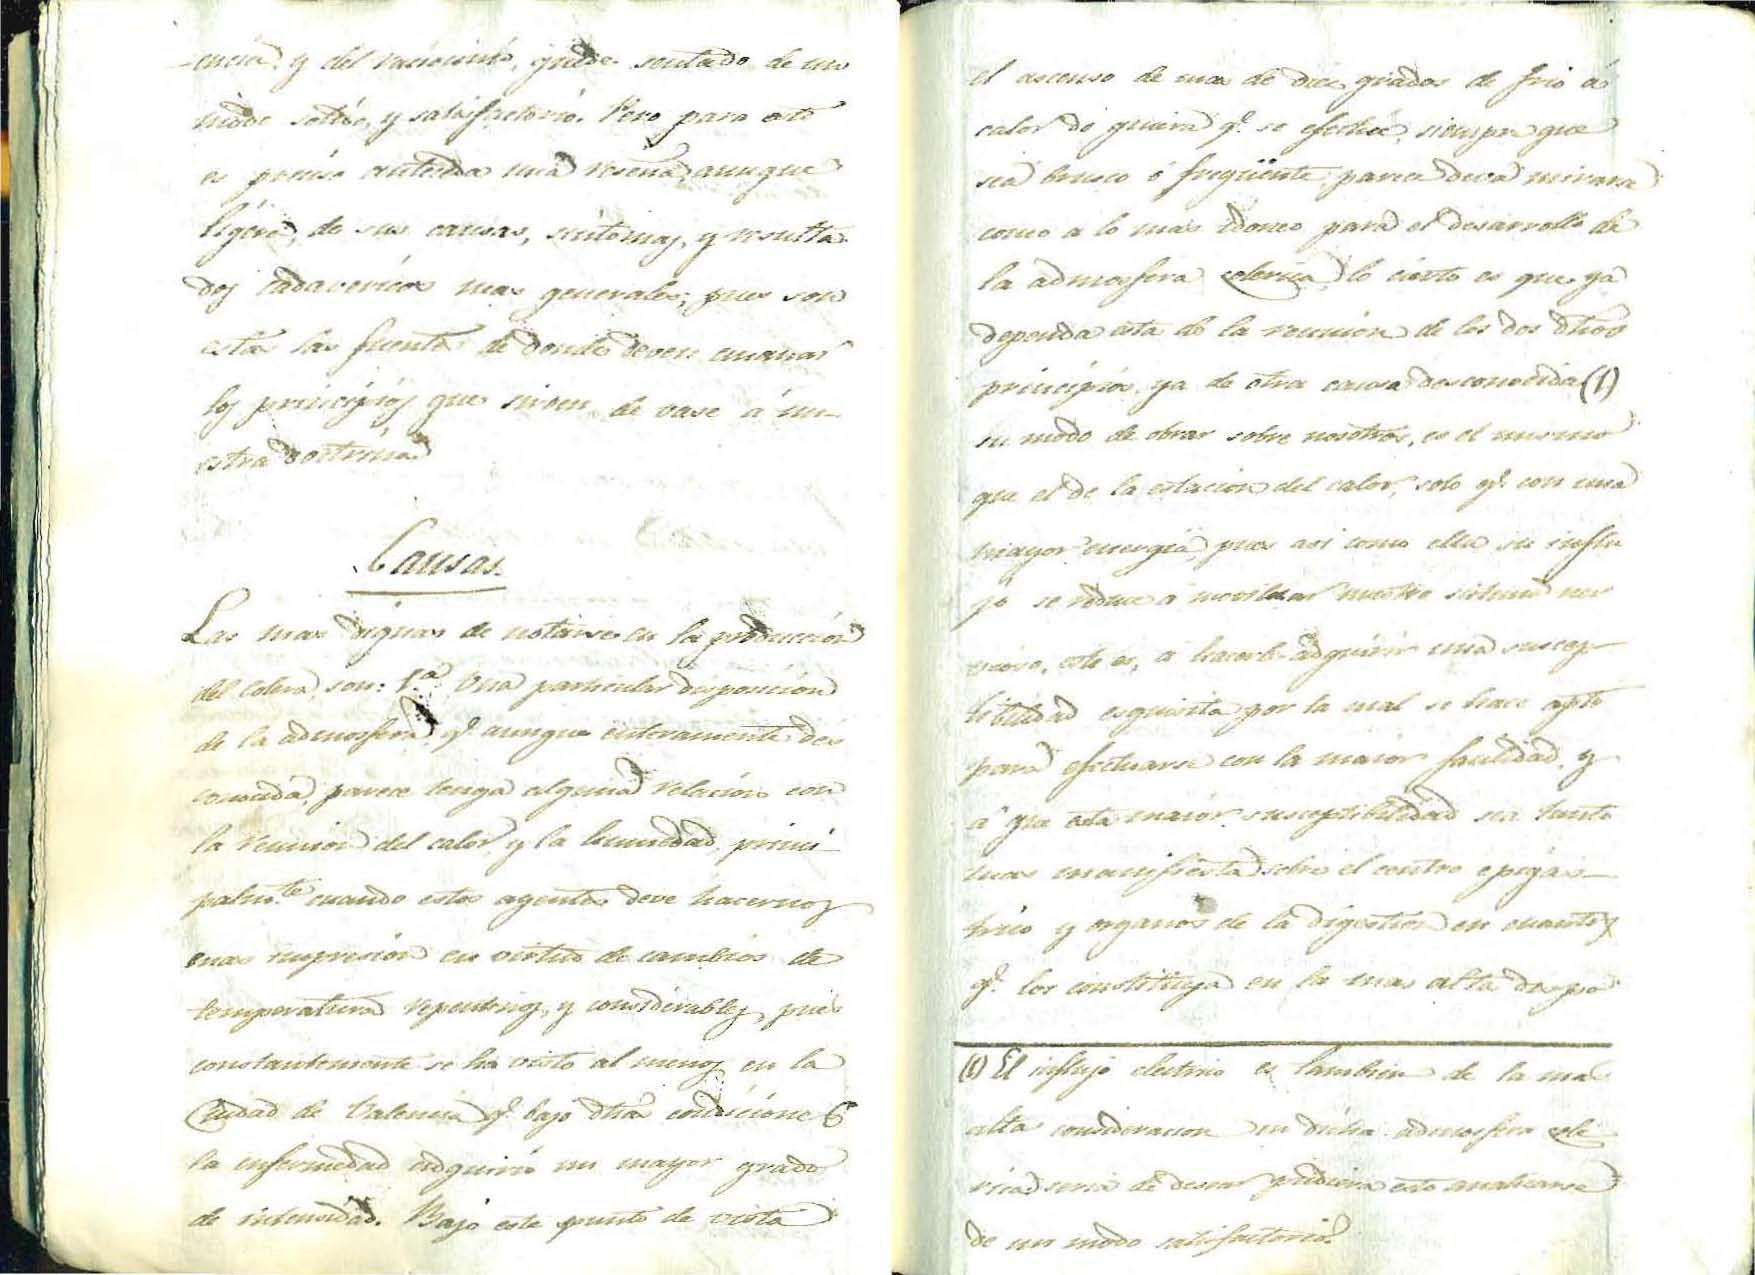 -encia, y del raciocinio, quede sentado de un
modo solido, y satisfactorio. Pero para esto
es preciso anteceda una reseña, aunque
ligera, de sus causas, sintomas, y resulta-
dos cadavericos mas generales; pues son
estas las fuentes de donde deven emanar
los principios que sirven de vase á nu-
estra doctrina
Causas.
Las mas dignas de notarse en la producción
del colera, son: 1.ª Una particular disposición
de la admosfera q.e aunque enteramente des
conocida, parece tenga alguna relación con
la reunion del calor y la humedad, princi-
palm.te cuando estos agentes deve hacernos
mas impresión en virtud de cambios de
temperatura repentinos, y considerables, pues
constantemente se ha visto al menos en la
Ciudad de Valencia q.e bajo dha condiciones
la enfermedad adquirió un mayor grado
de intensidad. Bajo este punto de vista
el ascenso de mas de diez grados de frio á
calor de q.e se efectúe, siempre que
sea brusco ó freqüente, parece deva mirarse
como a lo mas idoneo para el desarrollo de
la admosfera colerica, lo cierto es que ya
dependa esta de la reunion de los dos dhos
principios, ya de otra causa desconocida (1)
su modo de obrar sobre nosotros, es el mismo
que el de la estación del calor, solo q.e con una
mayor energia, pues asi como ella su influ
jo se reduce á movilizar nuestro sistema ner
vioso, esto es, a hacerle adquirir una suscep-
tibilidad esquisita por la cual se hace apto
para efectuarse con la maior facilidad, y
á que esta maior susceptibilidad sea tanto
mas manifiesta sobre el centro epigas-
trico y organos de la digestion en cuanto
q.e los constituya en la mas alta dispo
(1) El influjo electrico es tambien de la mas
alta consideracion en dicha admosfera cole
rica, seria de desear pudiera esto analizarse
de un modo satisfactorio.